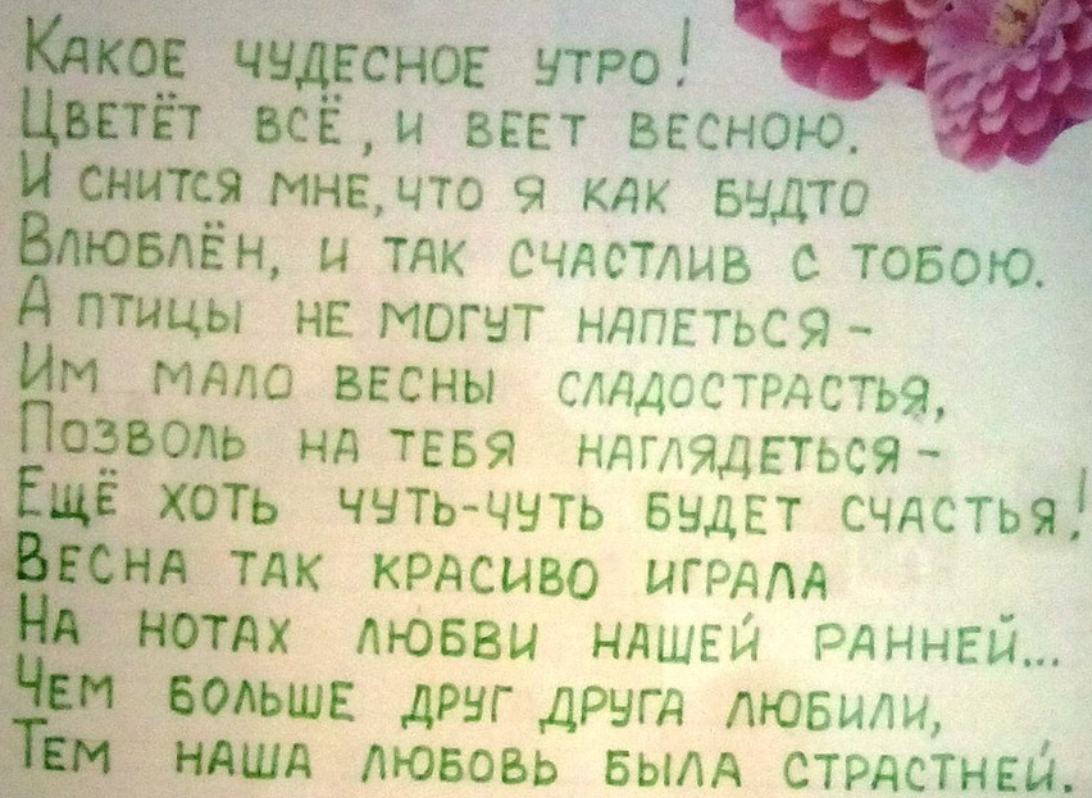 Какое чудесное утро!
Цветёт всё, и веет весною.
И снится мне, что я как будто
Влюблён, и так счастлив с тобою.
А птицы не могут напеться –
Им мало весны сладострастья,
Позволь на тебя наглядеться –
Ещё хоть чуть-чуть будет счастья!
Весна так красиво играла
На нотах любви нашей ранней...
Чем больше друг друга любили,
Тем наша любовь была страстней.